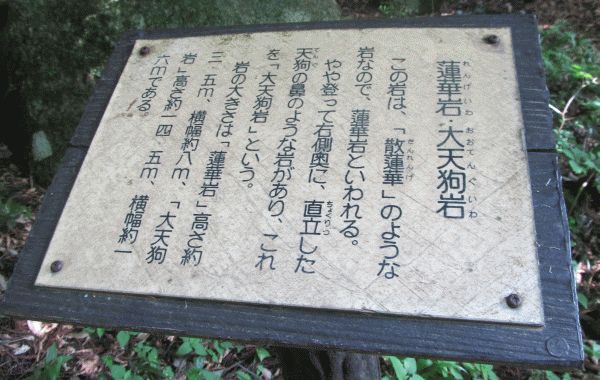 蓮華岩・大天狗岩
れんげいわ おおてんぐいわ
この岩は、「散蓮華」のような
さんれんげ
岩なので、蓮華岩といわれる。
やや登って右側奥に、直立した
ちょくりつ
天狗の鼻のような岩があり、これ
てんぐ
を「大天狗岩」という。
岩の大きさは「蓮華岩」高さ約
三、五m、横幅約八m、「大天狗
岩」高さ約一四、五m、横幅約一
六mである。